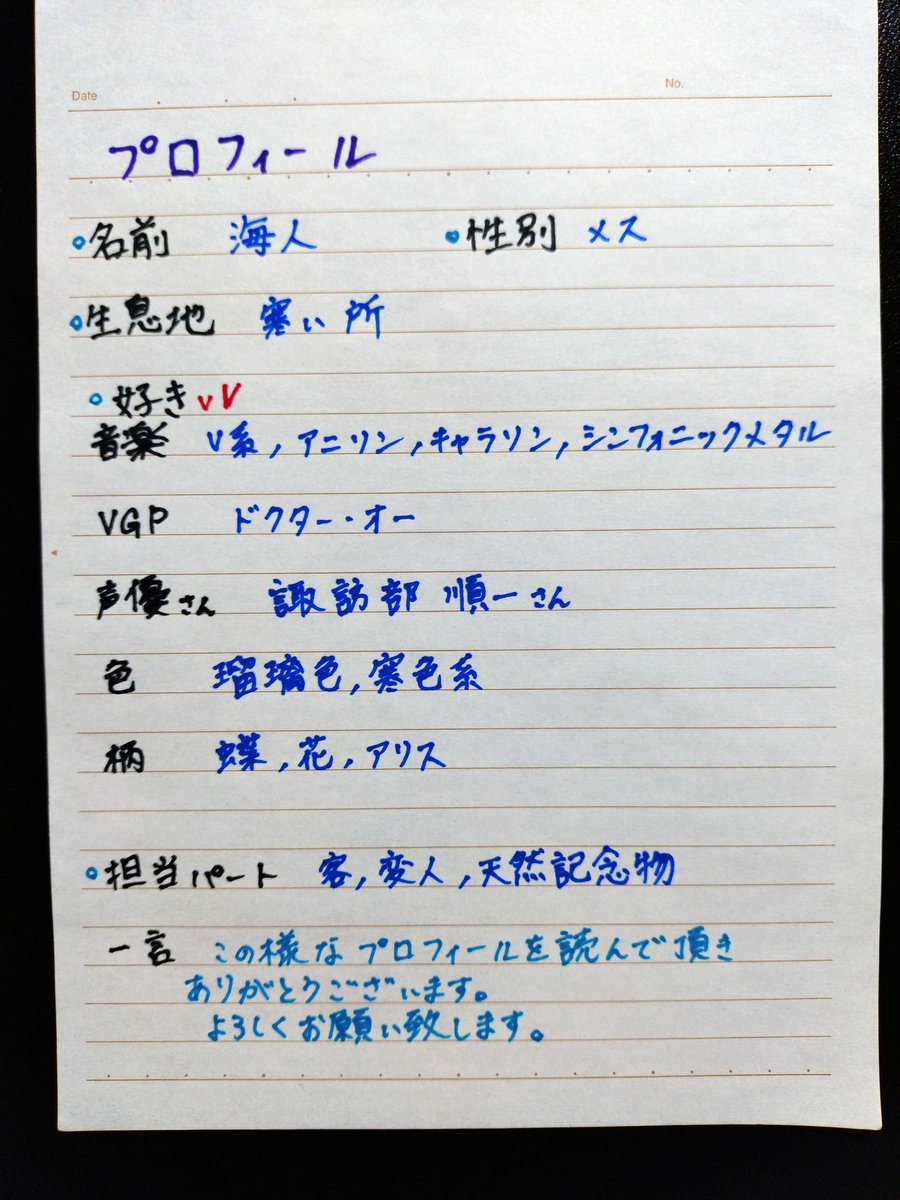 Date No.
プロフィール
○名前 海人 ○性別 メス
○生息地 寒い所
○好きvV
音楽 V系,アニソン,キャラソン,シンフォニックメタル
VGP ドクター・オー
声優さん 諏訪部 順一さん
色 瑠璃色,寒色系
柄 蝶,花,アリス
○担当パート 客,変人,天然記念物
一言 この様なプロフィールを読んで頂き
ありがとうございます。
よろしくお願い致します。